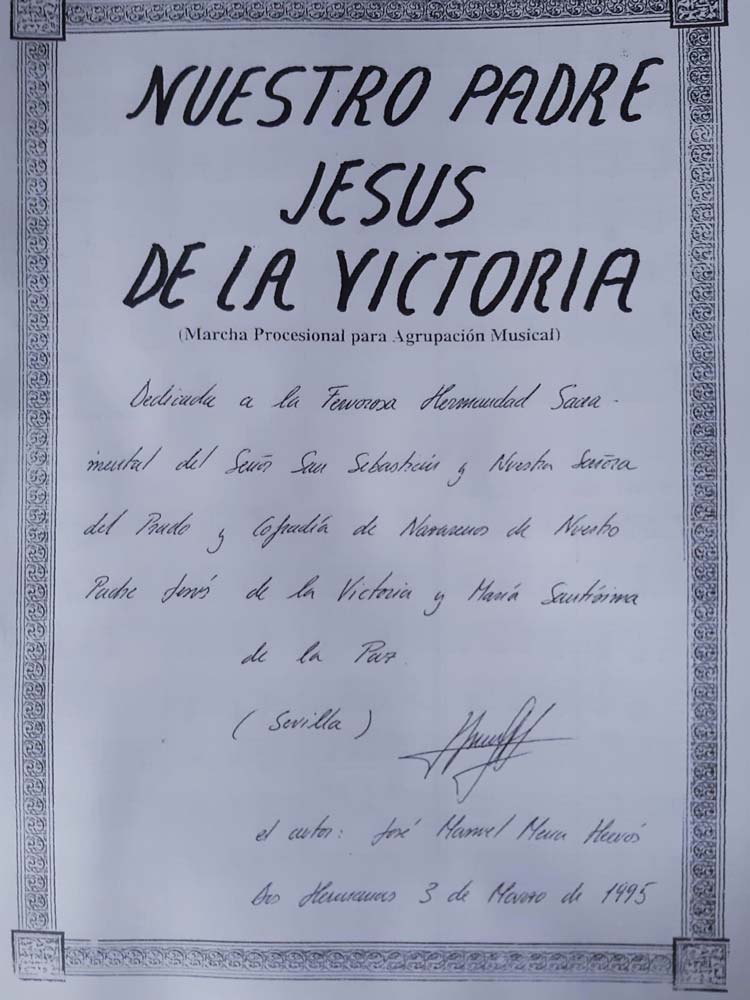 NUESTRO PADRE
JESUS
DE LA VICTORIA
(Marcha Procesional para Agrupación Musical)
Dedicada a la Fervorosa Hermandad Sacra-
mental del Señor San Sebastián y Nuestra Señora
del Prado y Cofradía de Nazarenos de Nuestro
Padre Jesús de la Victoria y María Santísima
de la Paz.
(Sevilla)
el autor: José Manuel Mena Hervás
Dos Hermanas 3 de Marzo de 1995